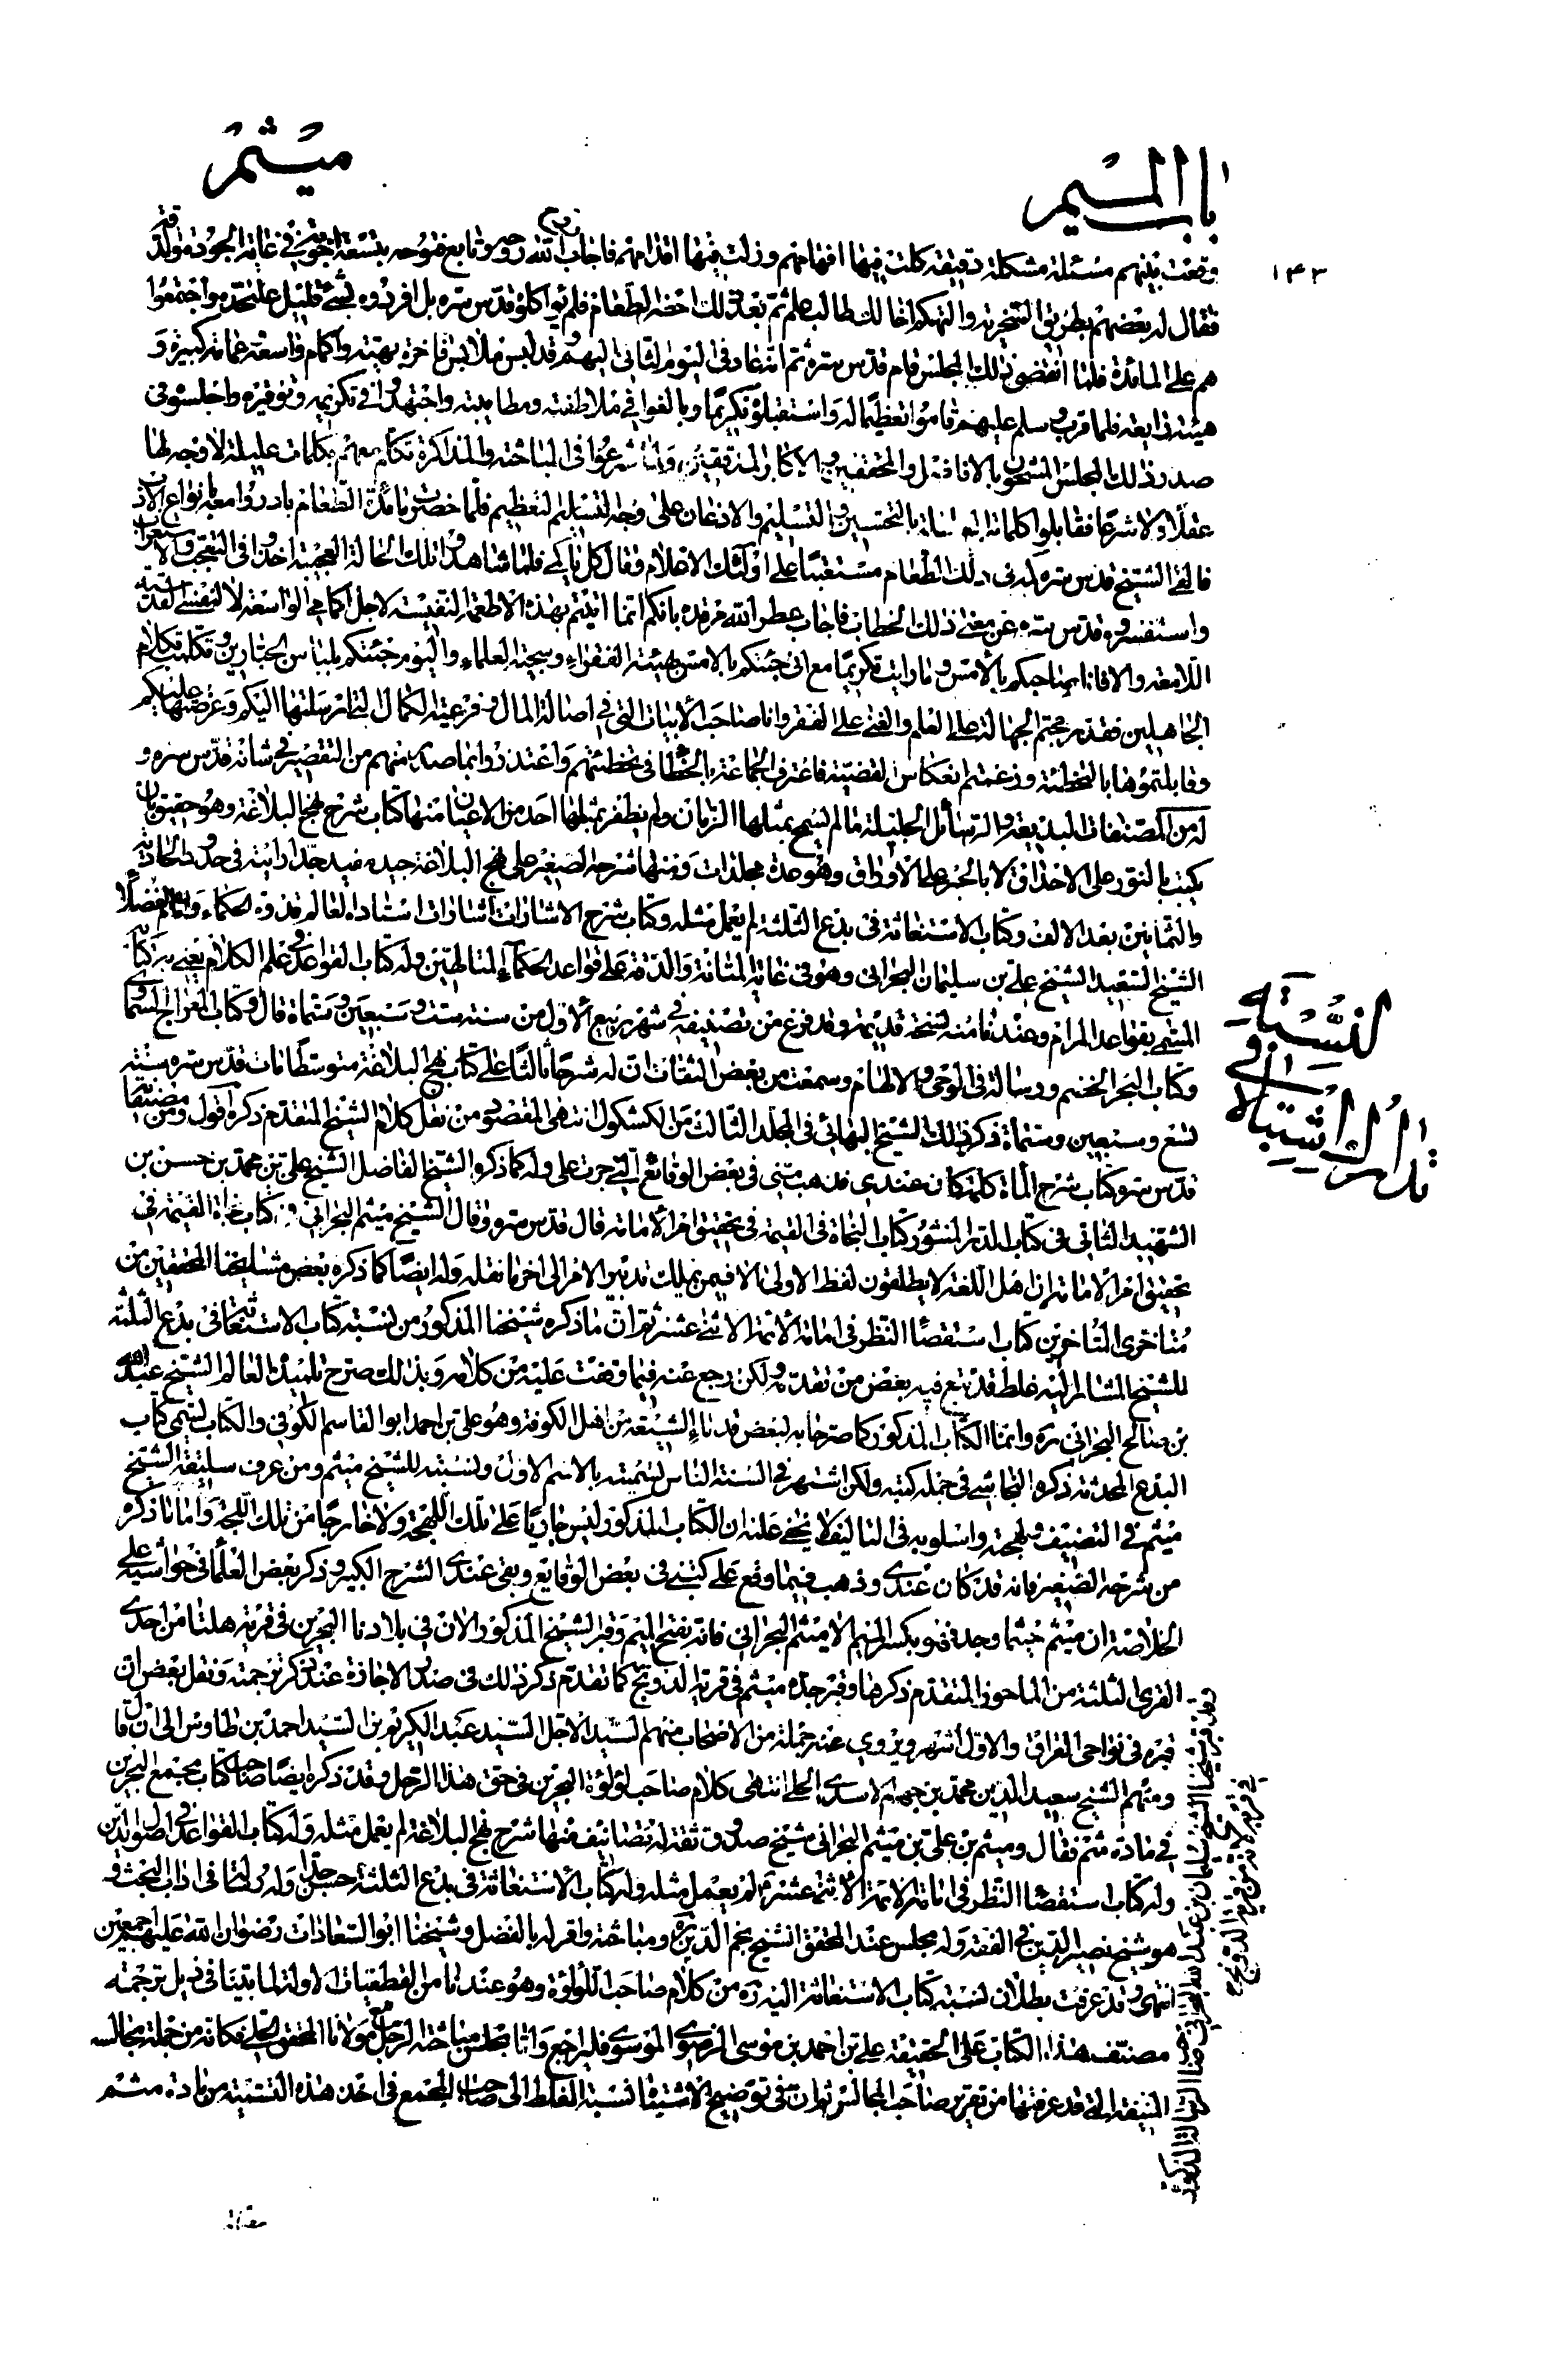 باب الميم
ميثم
١٤٣
وقعت بينهم مسئلة مشكلة دقيقة كلت فيها افهامهم وزلت فيها اقدامهم فاجاب روح الله روحه وتابع فتوحه بتسعة اجوبة في غاية الجودة والدقة
فقال له بعضهم بطريق السخرية والتهكم اخالك طالب علم ثم بعد ذلك احضر الطعام فلم يواكلوه قدس سره بل افردوه بشئ قليل على حدة واجتمعوا
هم على المائدة فلما انقضى ذلك المجلس قام قدس سره ثم انه عاد في اليوم الثاني اليهم وقد لبس ملابس فاخرة بهية واكمام واسعة وعمامة كبيرة و
هيئة رائعة فلما قرب وسلم عليهم قاموا تعظيما له واستقبلوه تكريما وبالغوا في ملاطفته ومطايبته واجتهدوا في تكريمه وتوقيره واجلسوه في
صدر ذلك المجلس المشحون بالافاضل والمحققين والاكابر المدققين ولما شرعوا في المباحثة والمذاكرة تكلم معهم بكلمات عليلة لا وجه لها
عقلا ولا شرعا فقابلوا كلماته العليلة بالتحسين والتسليم والاذعان على وجه التعظيم فلما حضرت مائدة الطعام بادروا معه بانواع الادب
فالقى الشيخ قدس سره كمه في ذلك الطعام مستعتبا على اولئك الاعلام وقال كل يا كمي فلما شاهدوا تلك الحالة العجيبة اخذوا في التعجب والاستغراب
واستفسروه قدس سره عن معنى ذلك الخطاب فاجاب عطر الله مرقده بانكم انما اتيتم بهذه الاطعمة النفيسة لاجل اكمامي الواسعة لا لنفسي القدسية
اللامعة والا فانا صاحبكم بالامس وما رايت تكريما مع اني جئتكم بالامس بهيئة الفقراء وسجية العلماء واليوم جئتكم بلباس الجبارين وتكلمت بكلام
الجاهلين فقد رجحتم الجهالة على العلم والغنى على الفقر وانا صاحب الابيات التي في اصالة المال وفرعية الكمال التي ارسلتها اليكم وعرضتها عليكم
وقابلتموها بالتخطئة وزعمتم انعكاس القضية فاعترف الجماعة بالخطاء في تخطئتهم واعتذروا بما صدر منهم من التقصير في شانه قدس سره و
له من المصنفات البديعة والرسائل الجليلة ما لم يسمح بمثلها الزمان ولم يظفر بمثلها احد من الاعيان منها كتاب شرح نهج البلاغة وهو حقيق بان
يكتب بالنور على الاحداق لا بالحبر على الاوراق وهو عدة مجلدات ومنها شرحه الصغير على نهج البلاغة جيد مفيد جدا رايته في حدود الحادية
والثمانين بعد الالف وكتاب الاستغاثة في بدع الثلثة لم يعمل مثله وكتاب شرح الاشارات اشارات استاده العالم قدوة الحكماء وامام الفضلاء
الشيخ السعيد الشيخ علي بن سليمان البحراني وهو في غاية المتانة والدقة على قواعد الحكماء المتالهين وله كتاب القواعد في علم الكلام يعني به كتابه
المسمى بقواعد المرام وعندنا منه نسخة قديمة وقد فرغ من تصنيفه في شهر ربيع الاول من سنة ست وسبعين وستماة قال وكتاب المعراج السماوي
وكتاب البحر الخضم ورسالة في الوحي والالهام وسمعت من بعض الثقات ان له شرحا ثالثا على كتاب نهج البلاغة متوسطا مات قدس سره سنة
تسع وسبعين وستماة ذكر ذلك الشيخ البهائي في المجلد الثالث من الكشكول انتهى المقصود من نقل كلام الشيخ المتقدم ذكره اقول ومن مصنفاته
قدس سره كتاب شرح المأة كلمة كان عندي فذهب مني في بعض الوقائع التي جرت علي وله كما ذكره الشيخ الفاضل الشيخ علي بن محمد بن حسن بن
الشهيد الثاني في كتاب الدر المنثور كتاب النجاة في القيمة في تحقيق امر الامامة قال قدس سره وقال الشيخ ميثم البحراني في كتاب نجاة القيمة في
تحقيق امر الامامة ان اهل اللغة لا يطلقون لفظ الاولى الا فيمن يملك تدبير الامر الى اخر ما نقله وله ايضا كما ذكره بعض مشايخنا المحققين من
متاخري المتاخرين كتاب استقصاء النظر في امامة الائمة الاثني عشر ثم ان ما ذكره شيخنا المذكور من نسبة كتاب الاستغاثة في بدع الثلثة
للشيخ المشار اليه غلط قد تبع فيه بعض من تقدمه ولكن رجع عنه فيما وقفت عليه من كلامه وبذلك صرح تلميذه العالم الشيخ عبد الله
بن صالح البحراني ره وانما الكتاب المذكور كما صرحا به لبعض قدماء الشيعة من اهل الكوفة وهو علي بن احمد ابو القاسم الكوفي والكتاب يسمى كتاب
البدع المحدثة ذكره النجاشي في جملة كتبه ولكن اشتهر في السنة الناس تسميته بالاسم الاول ونسبته للشيخ ميثم ومن عرف سليقة الشيخ
ميثم في التصنيف ولهجته واسلوبه في التاليف لا يخفى عليه ان الكتاب المذكور ليس جاريا على تلك اللهجة ولا خارجا من تلك اللجة واما ما ذكره
من شرحه الصغير فانه قد كان عندي وذهب فيما وقع على كتبي في بعض الوقايع وبقي عندي الشرح الكبير وذكر بعض العلماء في حواشيه على
الخلاصة ان ميثم حيثما وجد فهو بكسر الميم الا ميثم البحراني فانه بفتح الميم وقبر الشيخ المذكور الان في بلادنا البحرين في قرية هلتا من احدى
القرى الثلثة من الماحوز المتقدم ذكرها وقبر جده ميثم في قرية الدونج كما تقدم ذكر ذلك في صدر الاجازة عند ذكر ترجمته ونقل بعض ان
قبره في نواحي العراق والاول اشهر ويروي عنه جملة من الاصحاب منهم السيد الاجل السيد عبد الكريم بن السيد احمد بن طاوس الى ان قال
ومنهم الشيخ سعيد الدين محمد بن جهم الاسدي الحلي انتهى كلام صاحب لؤلؤة البحرين في حق هذا الرجل وقد ذكره ايضا صاحب كتاب مجمع البحرين
في مادة مثم فقال وميثم بن علي بن ميثم البحراني شيخ صدوق ثقة له تصانيف منها شرح نهج البلاغة لم يعمل مثله وله كتاب القواعد في اصول الدين
وله كتاب استقصاء النظر في امامة الائمة الاثني عشر لم يعمل مثله وله كتاب الاستغاثة في بدع الثلثة حسن جدا وله رسالة في اداب البحث و
هو شيخ نصير الدين في الفقه وله مجلس عند المحقق الشيخ نجم الدين ره ومباحثة واقر له بالفضل وشيخنا ابو السعادات رضوان الله عليهم اجمعين
انتهى وقد عرفت بطلان نسبة كتاب الاستغاثة اليه ره من كلام صاحب اللؤلؤة وهو عندنا من القطعيات الاولية لما بينا في ذيل ترجمة
مصنف هذا الكتاب على الحقيقة علي بن احمد بن موسى الرضوي الموسوي فليراجع واما مجلس مباحثة الرجل مع مولانا المحقق الحلي فكانه من جملة مجالسه
المنيفة التي قد عرفتها من تقرير صاحب المجالس ثم ان في توضيح الاشتباه نسبة الغلط الى صاحب المجمع في اخذ هذه التسمية من مادة مثم